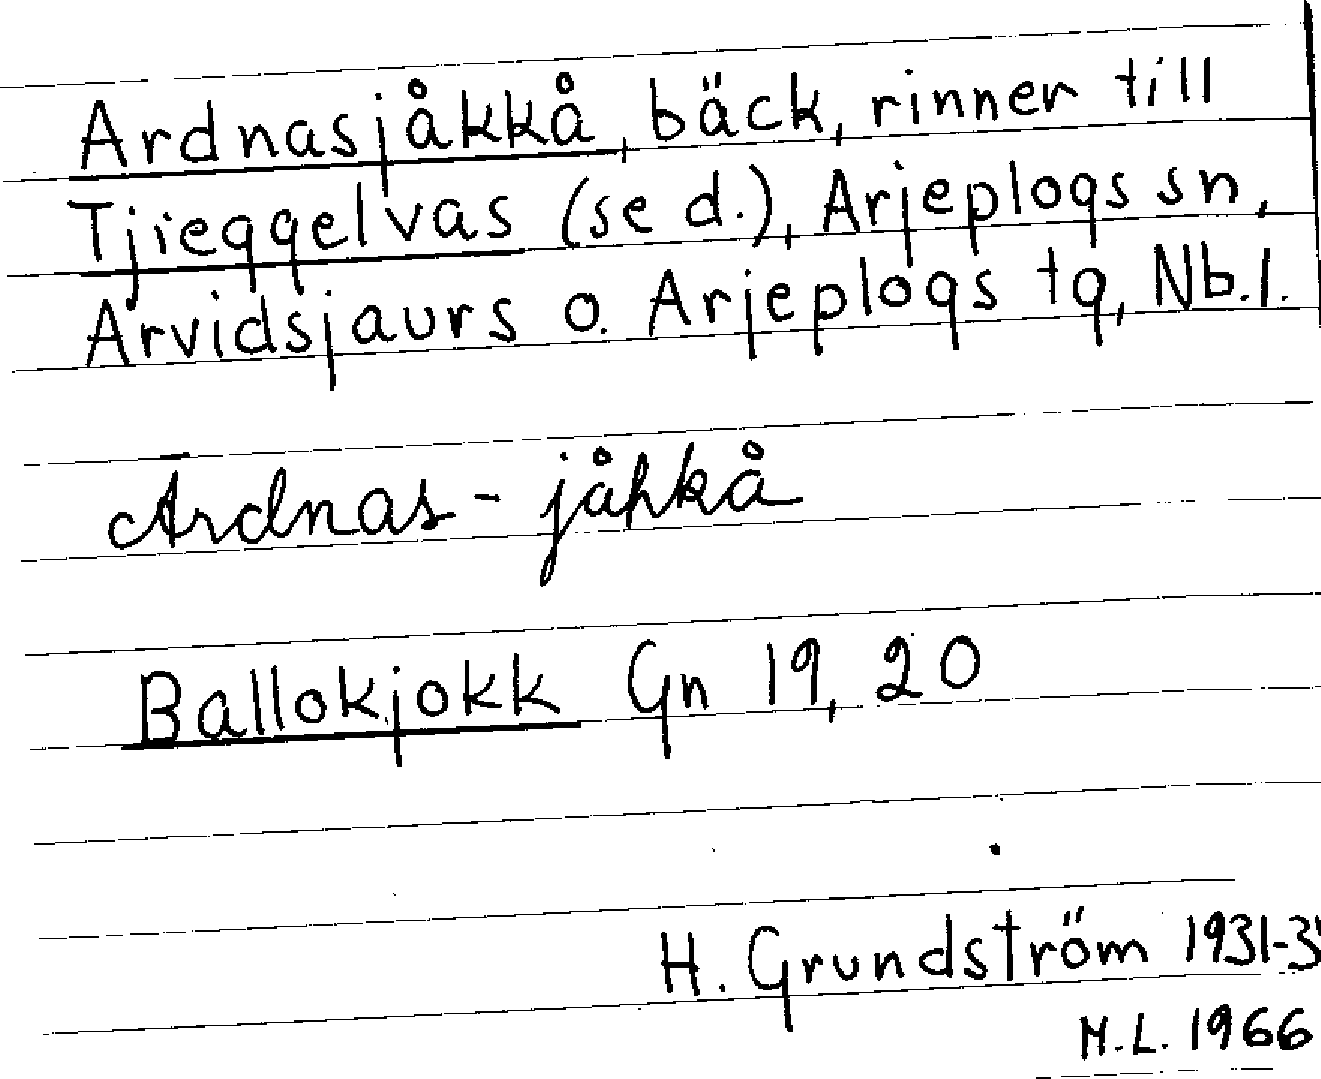 Ardnasjåkkå, bäck, rinner till
Tjieggelvas (se d.), Arjeplogs sn,
Arvidsjaurs o. Arjeplogs tg, Nb.l.
Ardnas-jåhkå
Ballokjokk Gn 19, 20
H. Grundström 1931-3
M.L. 1966